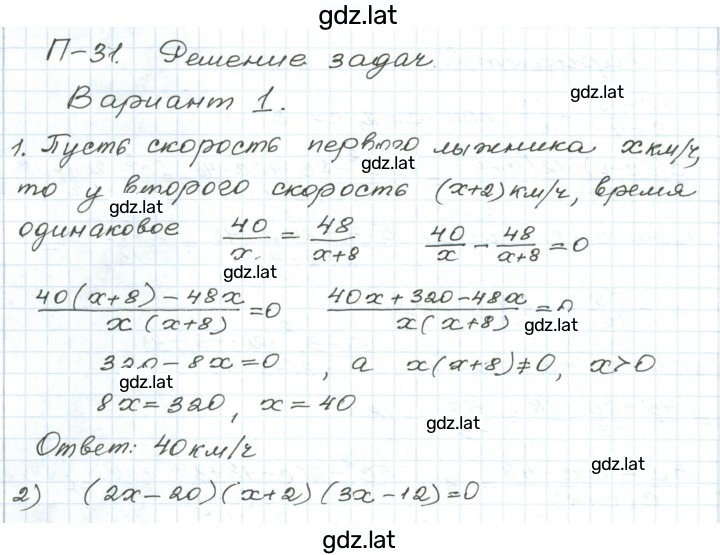 gdz.lat
П-31. Решение задач.
Вариант 1.
gdz.lat
1. Пусть скорость первого лыжника x км/ч,
gdz.lat
то у второго скорость (x+2) км/ч, время
gdz.lat
одинаковое 40/x = 48/(x+8) 40/x - 48/(x+8) = 0
gdz.lat
(40(x+8) - 48x)/(x(x+8)) = 0 (40x + 320 - 48x)/(x(x+8)) = 0
gdz.lat
320 - 8x = 0, а x(x+8) ≠ 0, x > 0
gdz.lat
8x = 320, x = 40
gdz.lat
Ответ: 40 км/ч
gdz.lat
2) (2x - 20)(x + 2)(3x - 12) = 0
gdz.lat